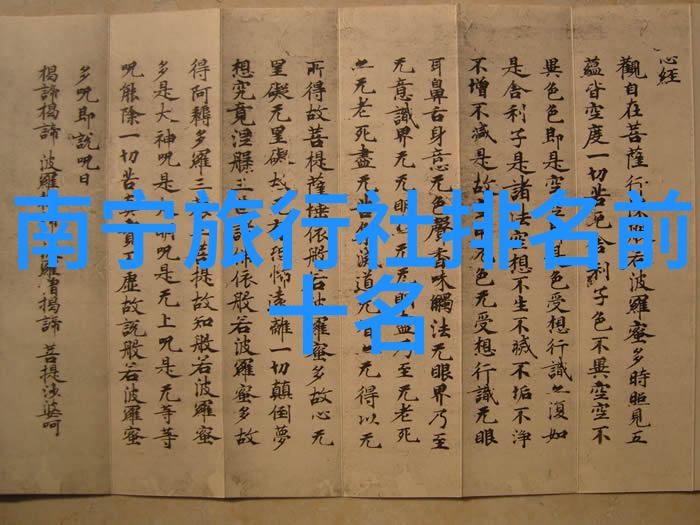 南宁旅行社排名前
十名
心经
觀自在菩薩行若波羅蜜多時照見五
蘊皆空度一切苦厄舍利子色不異空空不
異色色即是空空是色受想行識亦復如
是舍利子是諸法空想不生不滅不垢不淨
不增不減是故空中无色无受想行識无眼
耳鼻舌身意无色聲香味觸法无眼界乃至
无意識界无无明盡乃至无老死
亦无老死盡无苦滅道无智亦无得以无
所得故菩提薩埵依般若波羅蜜多故心无
罣礙无罣礙故无恐怖遠離一切顛倒夢
想究竟涅槃三世諸依般若波羅蜜多故
得阿耨多羅三菩提故知般若波羅蜜
多是大神呪是大明呪是无上呪是无等等
呪能除一切苦真實不虛故說般若波羅蜜
多呪即說呪曰
揭諦揭諦 波羅羅僧揭諦 菩提娑婆呵